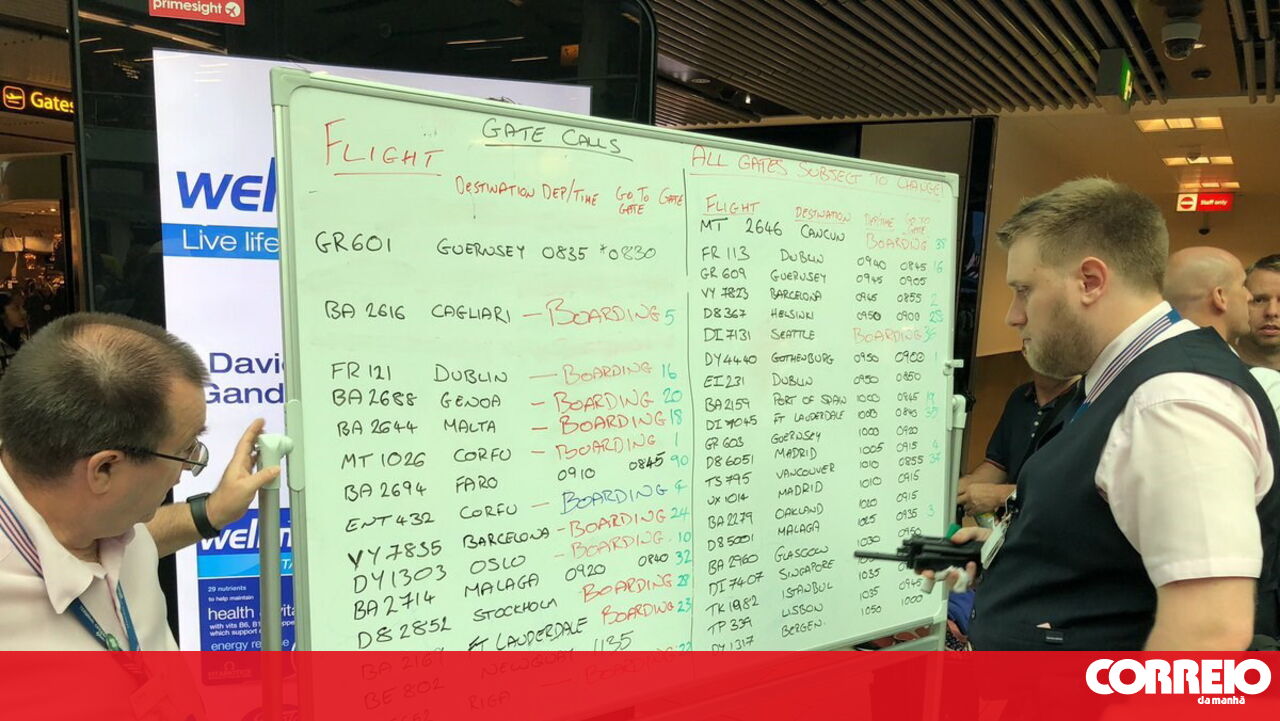 primesight
Gates
Live life
Davi
Gand
29 nutrients
to help maintain
health
with vits B6, B1
which support
energy re
GATE CALLS
FLIGHT
DESTINATION DEP/TIME GO TO GATE GATE
GR601 GUERNSEY 0835 *0830
BA 2616 CAGLIARI — BOARDING 5
FR 121 DUBLIN — BOARDING 16
BA 2688 GENOA — BOARDING 20
BA 2644 MALTA — BOARDING 18
MT 1026 CORFU — BOARDING 1
BA 2694 FARO 0910 0845 90
ENT 432 CORFU — BOARDING 4
VY 7835 BARCELONA - BOARDING 24
DY 1303 OSLO - BOARDING 10
BA 2714 MALAGA 0920 0840 32
D8 2852 STOCKHOLM BOARDING 28
BA 2167 FT LAUDERDALE BOARDING 23
BE 802 NEWQUAY 1135
RIGA - BOARDING
ALL GATES SUBJECT TO CHANGE!
FLIGHT DESTINATION DEP/TIME GO TO GATE
MT 2646 CANCUN BOARDING
FR 113 DUBLIN 0940 0845 16
GR 609 GUERNSEY 0945 0905
VY 7823 BARCELONA 0945 0855 2
D8 367 HELSINKI 0950 0900
DI 7131 SEATTLE BOARDING
DY 4440 GOTHENBURG 0950 0900 1
EI 231 DUBLIN 0950 0850
BA 2159 PORT OF SPAIN 1000 0945
DI 7045 FT LAUDERDALE 1000 0845
GR 603 GUERNSEY 1000 0920
D8 6051 MADRID 1005 0915 4
TS 795 VANCOUVER 1010 0855 37
UX 1014 MADRID 1010 0915
BA 2279 OAKLAND 1020 0915
D8 5001 MALAGA 1025 0935 3
BA 2960 GLASGOW 1030 0950
DI 7407 SINGAPORE 1035
TK 1982 ISTANBUL 1035 0945
TP 339 LISBON 1050 1000
DY 1317 BERGEN
Staff only
CORREIO
da manhã